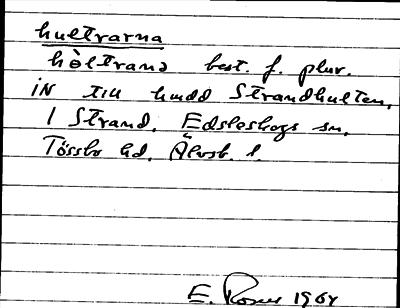 hultrarna
hòltrana best. f. plur.
IN till hmdd Strandhulten,
1 Strand, Edsleskogs sn,
Tössbo hd, Älvsb. l.
E. Rosén 1964